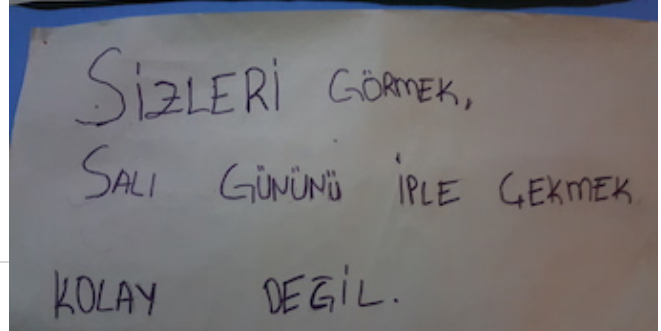 SİZLERİ GÖRMEK,
SALI GÜNÜNÜ İPLE ÇEKMEK
KOLAY DEĞİL.